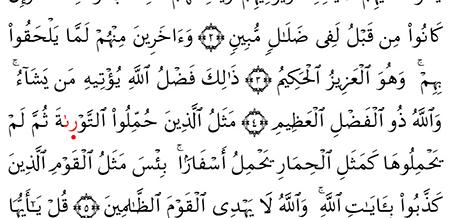 كَانُوا۟ مِن قَبْلُ لَفِى ضَلَـٰلٍ مُّبِينٍ ﴿٢﴾ وَءَاخَرِينَ مِنْهُمْ لَمَّا يَلْحَقُوا۟
بِهِمْ ۚ وَهُوَ ٱلْعَزِيزُ ٱلْحَكِيمُ ﴿٣﴾ ذَٰلِكَ فَضْلُ ٱللَّهِ يُؤْتِيهِ مَن يَشَآءُ ۚ
وَٱللَّهُ ذُو ٱلْفَضْلِ ٱلْعَظِيمِ ﴿٤﴾ مَثَلُ ٱلَّذِينَ حُمِّلُوا۟ ٱلتَّوْرَىٰةَ ثُمَّ لَمْ
يَحْمِلُوهَا كَمَثَلِ ٱلْحِمَارِ يَحْمِلُ أَسْفَارًۢا ۚ بِئْسَ مَثَلُ ٱلْقَوْمِ ٱلَّذِينَ
كَذَّبُوا۟ بِـَٔايَـٰتِ ٱللَّهِ ۚ وَٱللَّهُ لَا يَهْدِى ٱلْقَوْمَ ٱلظَّـٰلِمِينَ ﴿٥﴾ قُلْ يَـٰٓأَيُّهَا